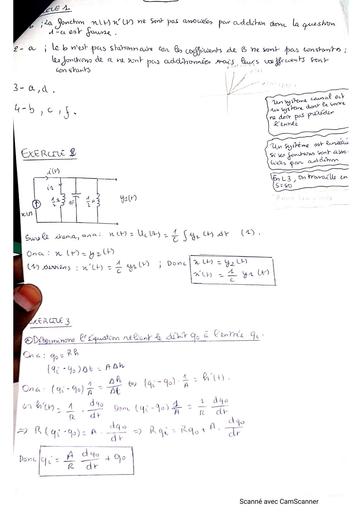 1 ; La fonction x(t) x'(t) ne sont pas associées par addition donc la question
1-a est fausse.
2-a ; le b n'est pas stationnaire car les coefficients de B ne sont pas constantes ;
les fonctions de a ne sont pas additionnées mais leurs coefficients sont
constants
3-a, d.
4-b, c, f.
Un système causal est
un système dont la sortie
ne doit pas précéder
l'entrée
Un système est linéaire
si les fonctions sont asso-
ciées par addition
En L3, on travaille en
EXERCICE 2
i(t)
i1
x(t)
y2(t)
Sur le schéma, on a : x(t) = Uc(t) = 1/C ∫ y1(t) dt (1).
On a : x(t) = y2(t)
(1) devient : x'(t) = 1/C y1(t) ; Donc x(t) = y2(t)
x'(t) = 1/C y1(t)
EXERCICE 3
① Déterminons l'équation reliant le débit q0 à l'entrée qi.
On a : q0 = Rh
(qi - q0) Δt = A Δh
On a : (qi - q0) 1/A = Δh/Δt or (qi - q0) · 1/A = h'(t).
h'(t) = 1/R · dq0/dt Donc (qi - q0) 1/A = 1/R dq0/dt
=> R(qi - q0) = A · dq0/dt => R qi = R q0 + A · dq0/dt
Donc qi = A/R dq0/dt + q0
Scanné avec CamScanner